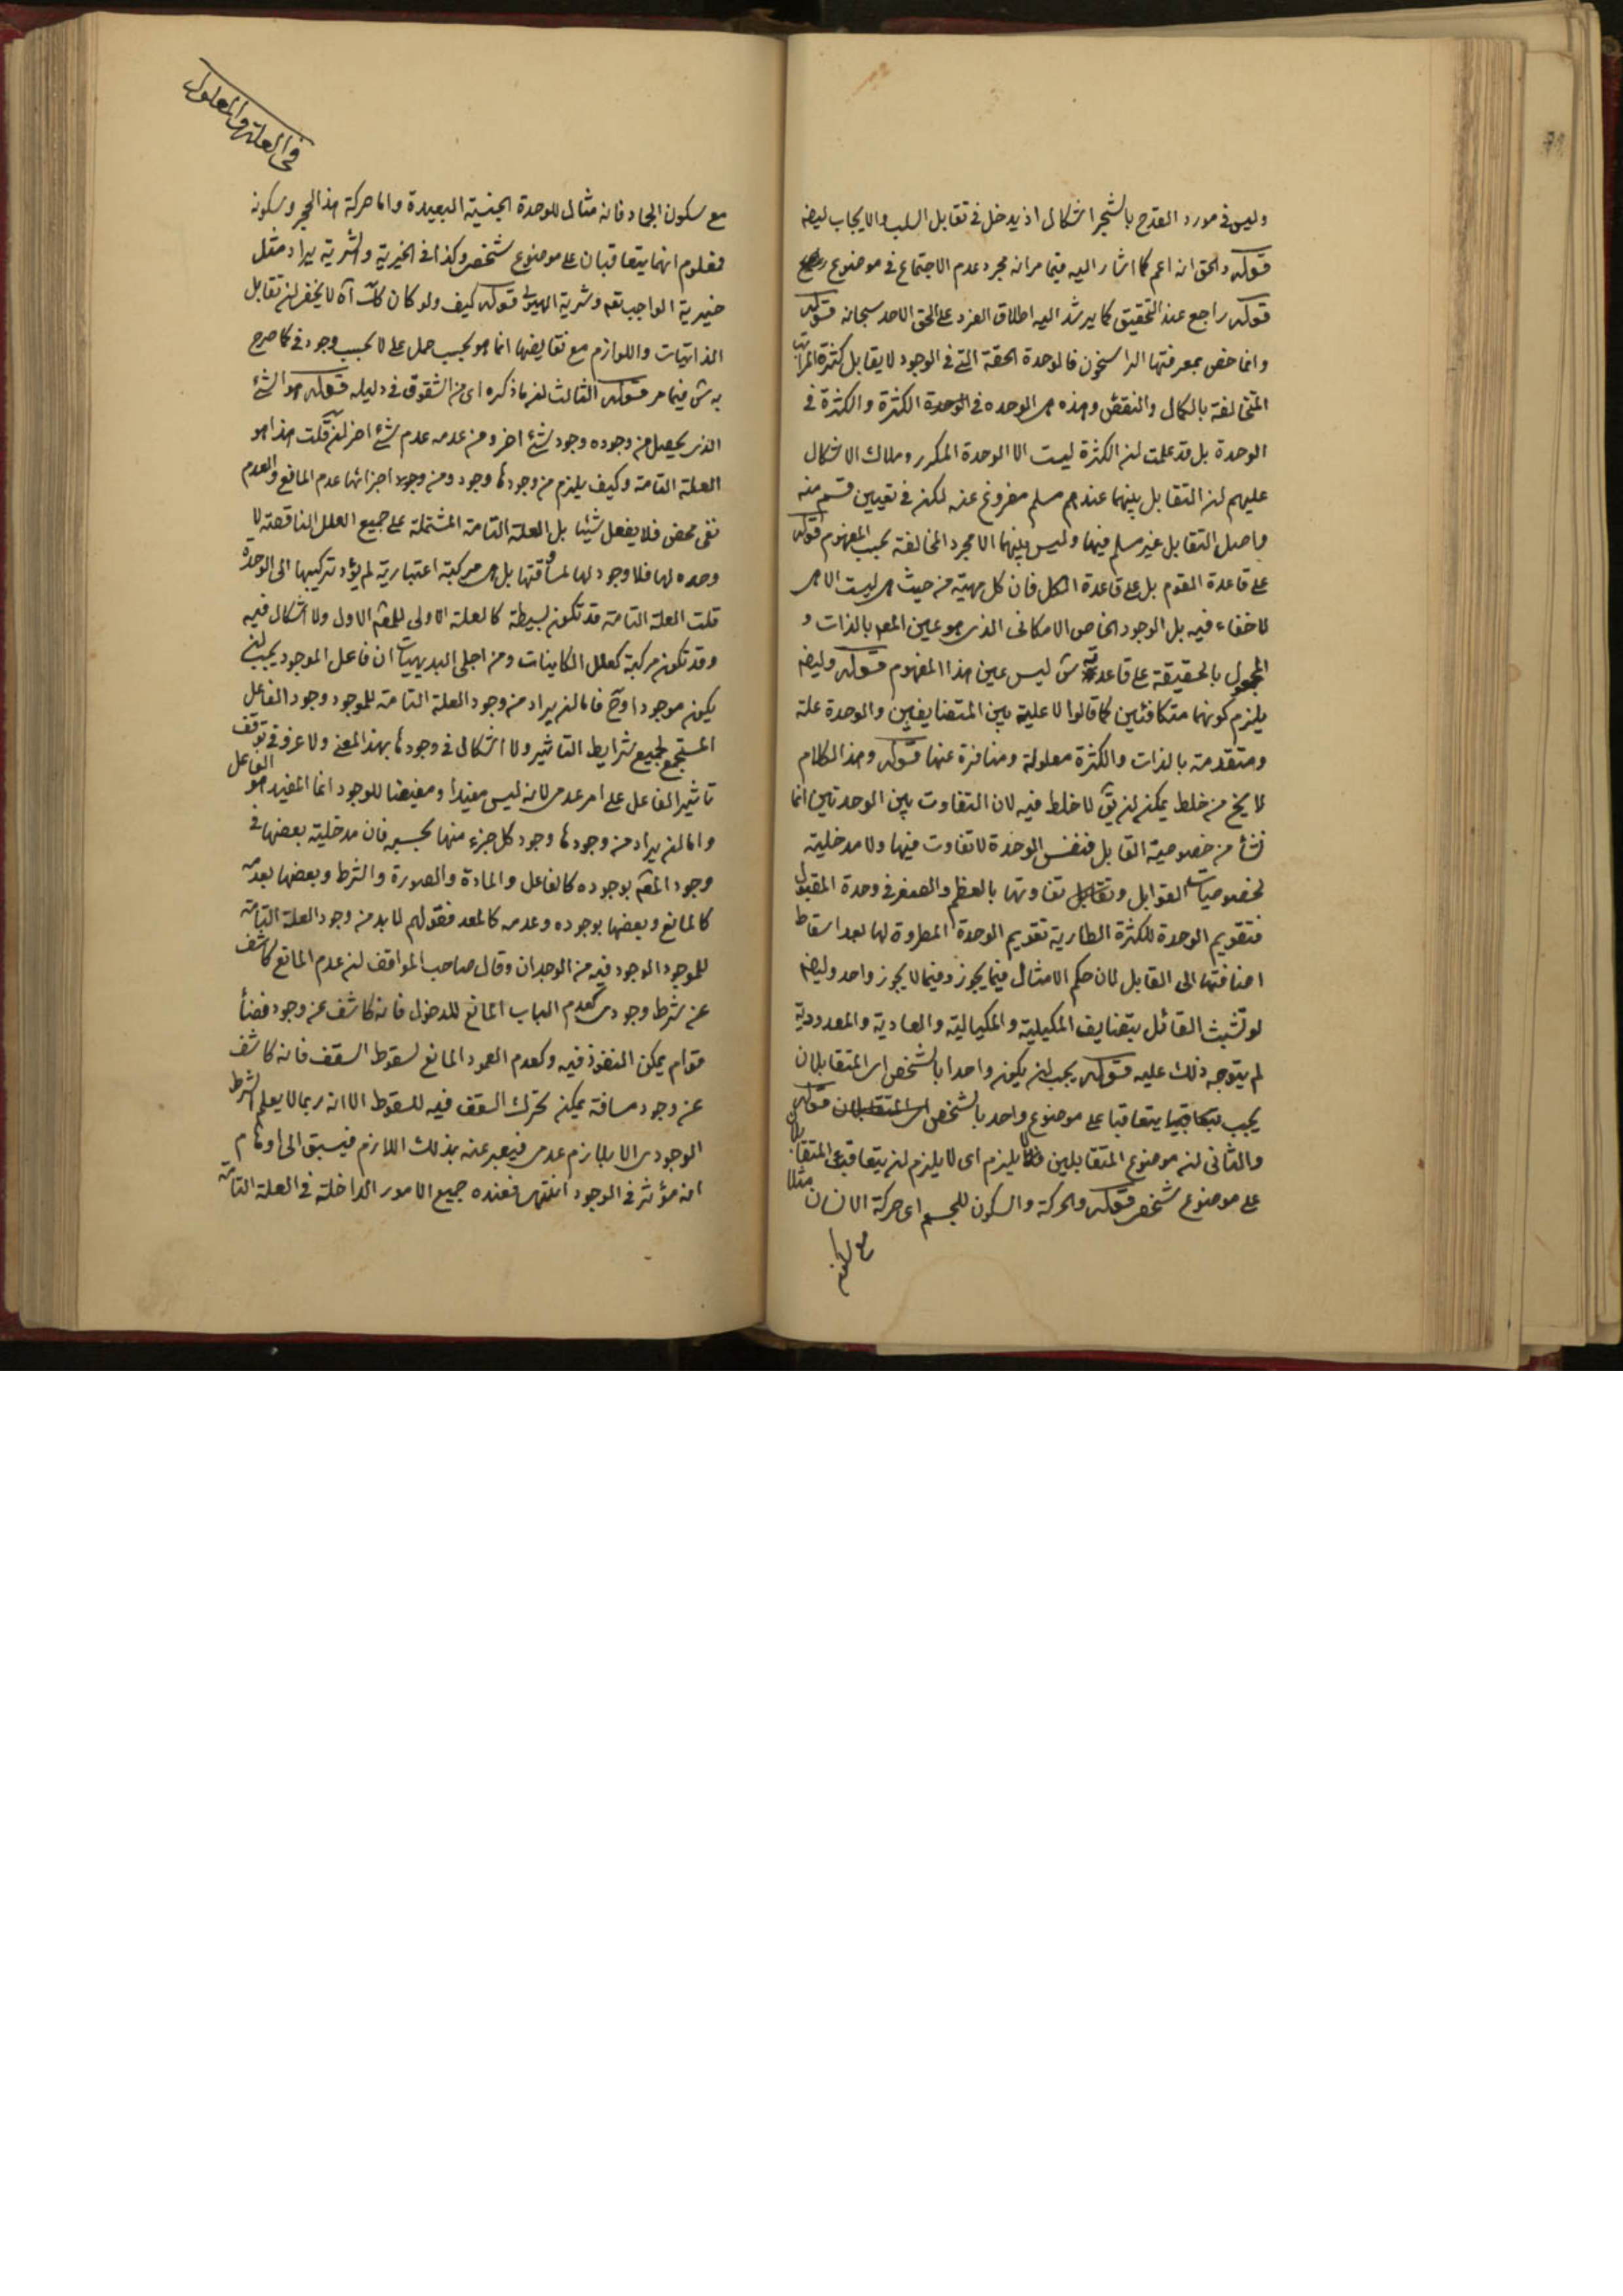 وليس في مورد القدح بالشجر اشكال اذ يدخل في تقابل السلب والايجاب ايضا
قوله والحق انه اعم كما اشار اليه فيما مر انه مجرد عدم الاجتماع في موضوع
قوله راجع عند التحقيق كما يرشد اليه اطلاق الفرد على الحق الاحد سبحانه قوله
وانما خص بمعرفتها الراسخون فالوحدة الحقة التي في الوجود لا يقابل كثرة المراتب
المتخالفة بالكمال والنقص وهذه هي الوحده في الوحدة الكثرة والكثرة في
الوحدة بل قد علمت ان الكثرة ليست الا الوحدة المكرر وملاك الاشكال
عليهم ان التقابل بينهما عندهم مسلم مفروغ عنه لكن في تعيين قسم منه
واصل التقابل غير مسلم فيها وليس بينهما الا مجرد المخالفة بحسب المفهوم قوله
على قاعدة القوم بل على قاعدة الكل فان كل مهية من حيث هي ليست الا هي
لا خفاء فيه بل الوجود الخاص الامكاني الذي هو عين المعه بالذات و
المجعول بالحقيقة على قاعدته ش ليس عين هذا المفهوم قوله وايضا
يلزم كونهما متكافئين كما قالوا لا علية بين المتضايفين والوحدة علة
ومتقدمة بالذات والكثرة معلولة ومتاخرة عنها قوله وهذا الكلام
لا يخ من خلط يمكن ان يق لا خلط فيه لان التفاوت بين الوحدتين انما
نشأ من خصوصية القابل فنفس الوحدة لا تفاوت فيها ولا مدخلية
لخصوصيات القوابل وتقابل تفاوتها بالعظم والصغر في وحدة المقبول
فتقويم الوحدة للكثرة الطارية تقويم الوحدة المطروة لها بعد اسقاط
اضافتها الى القابل لان حكم الامثال فيما يجوز وفيما لا يجوز واحد وايضا
لو تشبث القائل بتضايف المكيلية والمكيالية والعادية والمعدودية
لم يتوجه ذلك عليه قوله يجب ان يكون واحدا بالشخص اي المتقابلان
يجب يتعاقبا على موضوع واحد بالشخص اي المتقابلان قوله
والثاني ان موضوع المتقابلين لا يلزم اي لا يلزم ان يتعاقب المتقابلان
على موضوع شخصي قوله والحركة والسكون للجسم اي حركة الانسان مثلا
مع سكون
في العلة والمعلول
مع سكون الجماد فانه مثال للوحدة الجنسية البعيدة واما حركة هذا الحجر وسكونه
فمعلوم انهما يتعاقبان على موضوع شخصي وكذا في الخيرية والشرية يراد مثل
خيرية الواجب تعه وشرية الهيولى قوله كيف ولو كان كك آه لا يخفى ان تقابل
الذاتيات واللوازم مع نقايضها انما هو بحسب حمل على لا بحسب وجود في كما صرح
به ش فيما مر قوله الثالث ان ما ذكره اي من الشقوق في دليله قوله هو الشئ
الذي يحصل من وجوده وجود شئ اخر ومن عدمه عدم شئ اخر ان قلت هذا هو
العلة التامة وكيف يلزم من وجودها وجود ومن وجوه اجزائها عدم المانع والعدم
نفي محض فلا يفعل شيئا بل العلة التامة المشتملة على جميع العلل الناقصة لا
وحده لها فلا وجود لها لمساوقتها بل هي مركبة اعتبارية لم يؤد تركيبها الى الوحدة
قلت العلة التامة قد تكون بسيطة كالعلة الاولى للمعه الاول ولا اشكال فيه
وقد تكون مركبة كعلل الكاينات ومن اجلى البديهيات ان فاعل الموجود يجب ان
يكون موجودا وح فاما ان يراد من وجود العلة التامة للموجود وجود الفاعل
المستجمع لجميع شرايط التاثير ولا اشكال في وجودها بهذا المعنى ولا غرو في توقف
تاثير الفاعل على امر عدمي لانه ليس مفيدا ومفيضا للوجود انما المفيد هو الفاعل
واما ان يراد من وجودها وجود كل جزء منها بحسبه فان مدخلية بعضها في
وجود المعه بوجوده كالفاعل والمادة والصورة والشرط وبعضها بعدمه
كالمانع وبعضها بوجوده وعدمه كالمعد فقولهم لا بد من وجود العلة التامة
للموجود الموجود فيه من الوجدان وقال صاحب المواقف ان عدم المانع كاشف
عن شرط وجودي كعدم الباب المانع للدخول فانه كاشف عن وجود فضاء
قوام يمكن النفوذ فيه وكعدم العمود المانع لسقوط السقف فانه كاشف
عن وجود مسافة يمكن تحرك السقف فيه للسقوط الا انه ربما لا يعلم الشرط
الوجودي الا بلازم عدمي فيعبر عنه بذلك اللازم فيسبق الى اوهام
انه مؤثر في الوجود انتهى فعنده جميع الامور الداخلة في العلة التامة